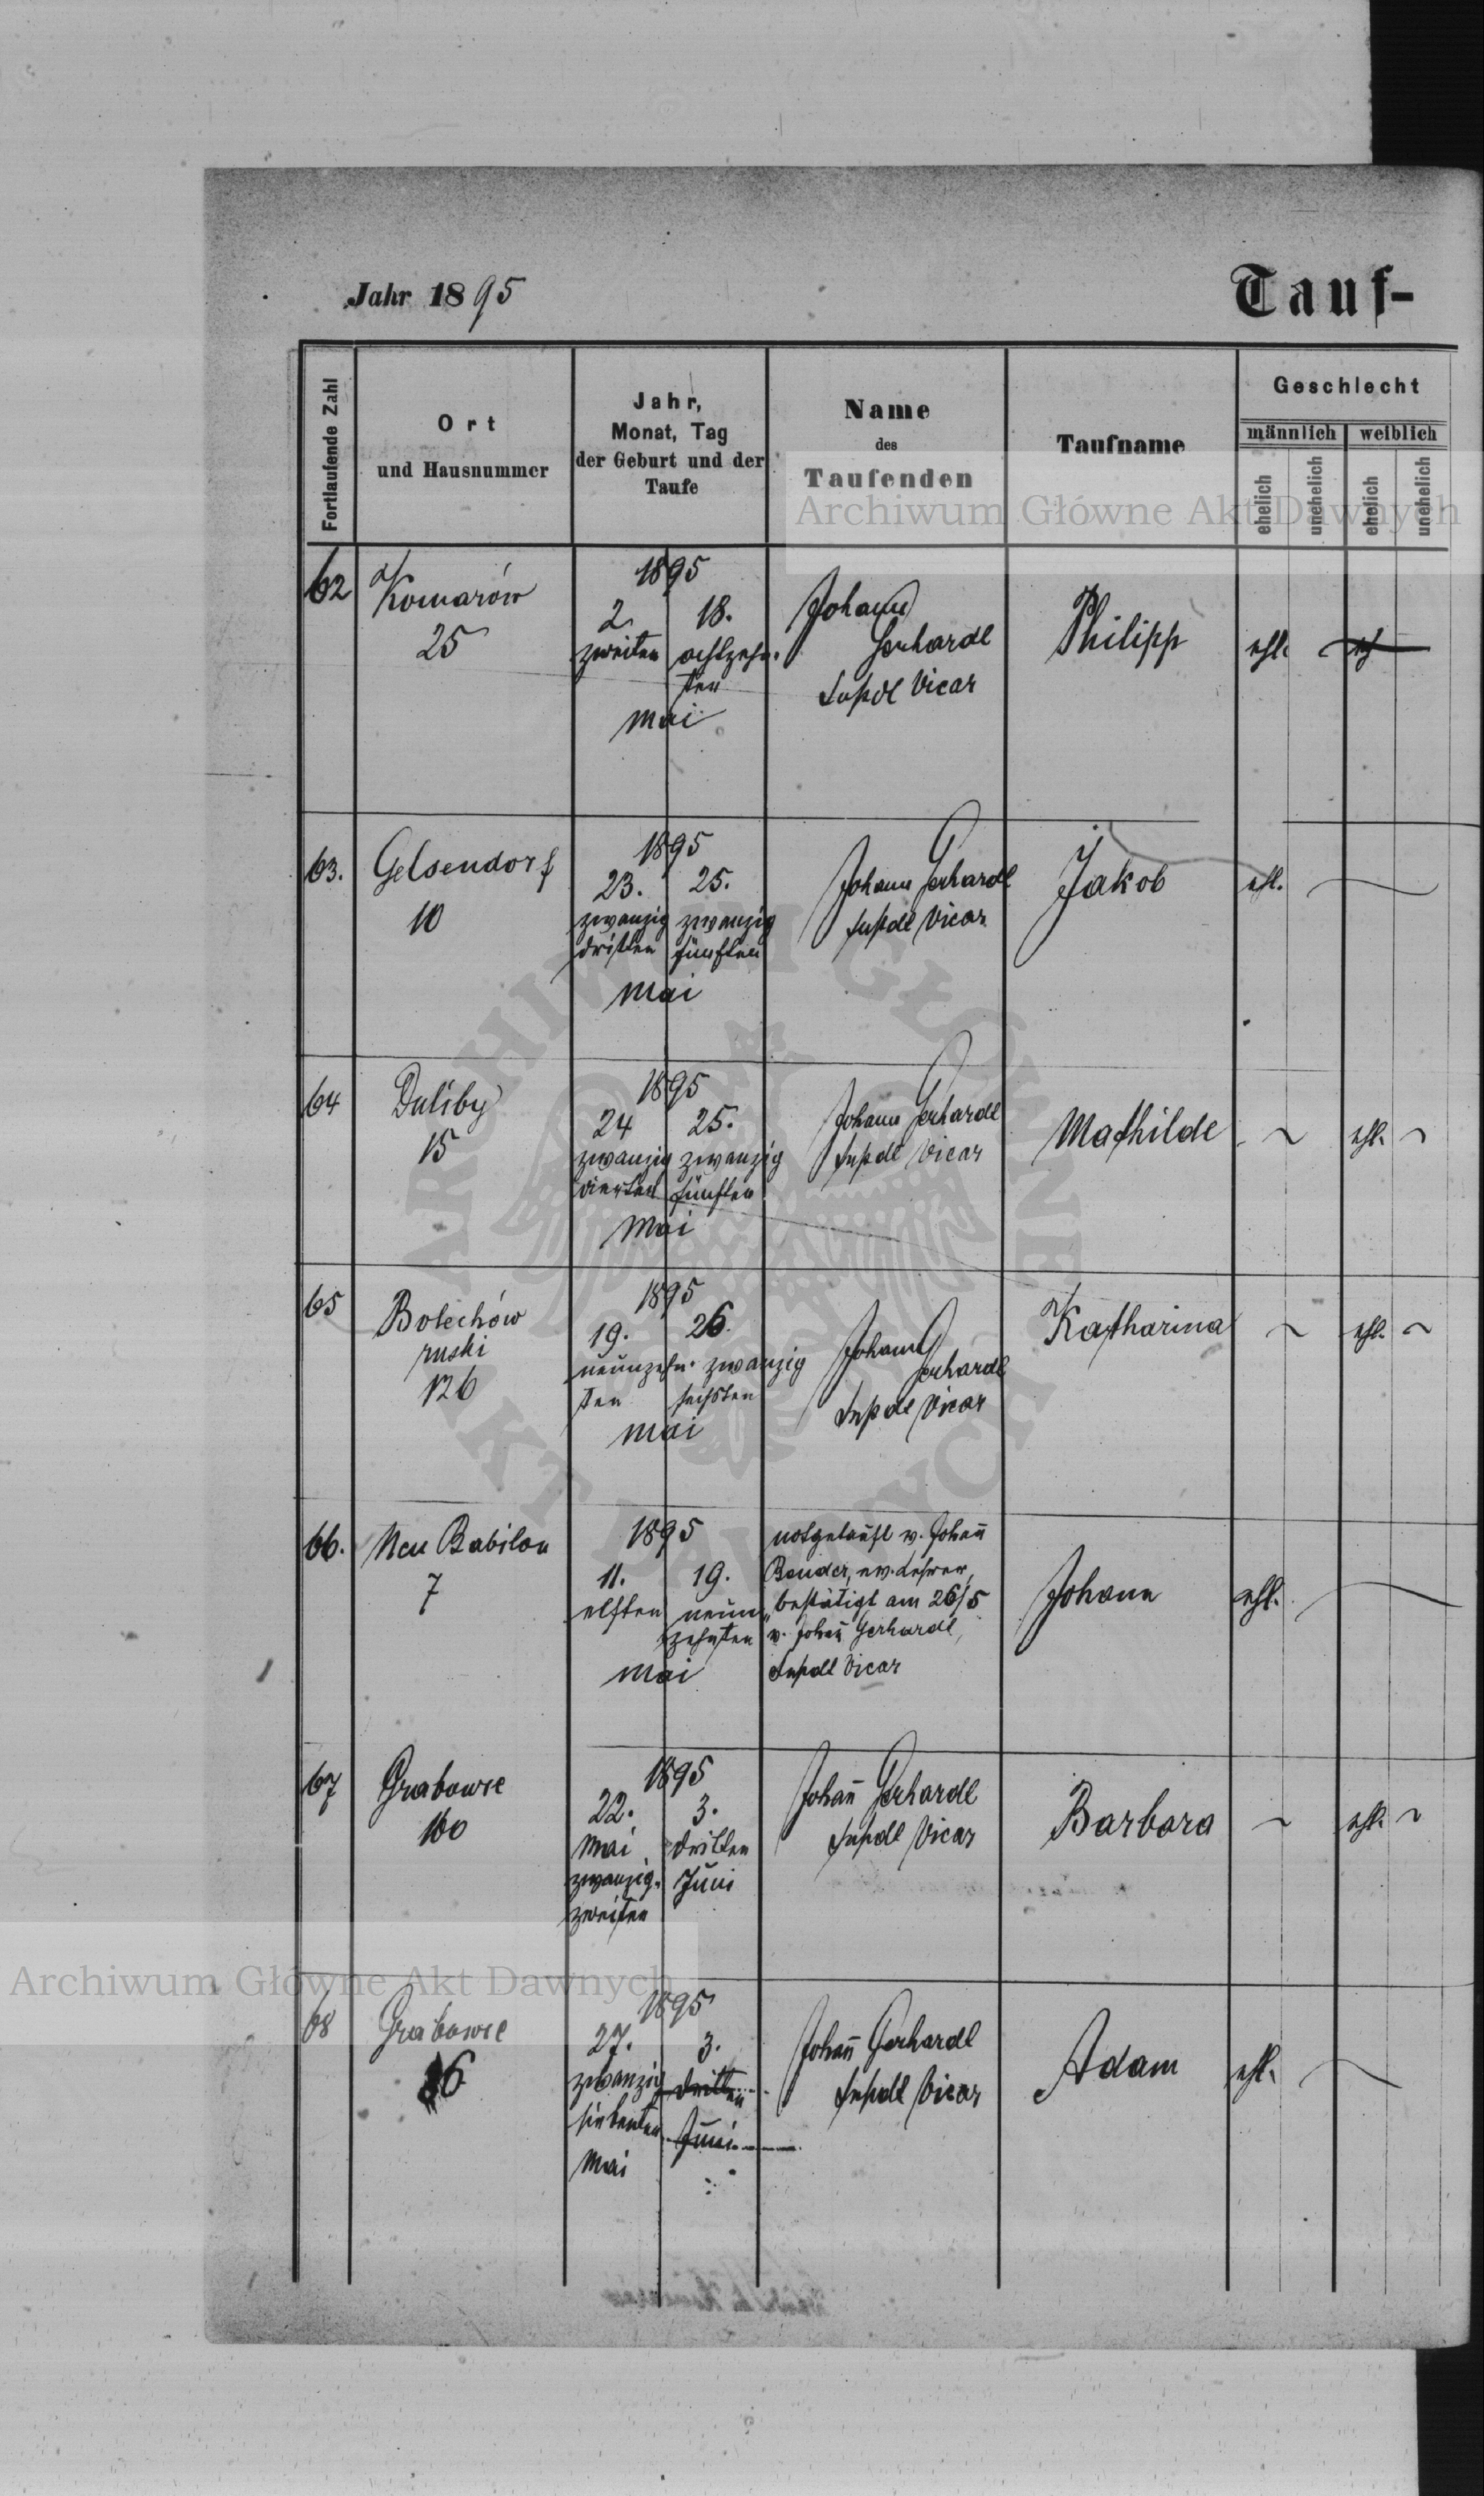 Jahr 1895
Tauf-
Fortlaufende Zahl
Ort
und Hausnummer
Jahr,
Monat, Tag
der Geburt und der
Taufe
Name
des
Taufenden
Taufname
Geschlecht
männlich weiblich
ehelich unehelich ehelich unehelich
Archiwum Główne Akt Dawnych
62
Komarów
25
1895
2. 18.
zweiten achtzehn-
ten
Mai
Johann
Gerhardt
Vicar
Philipp
ehl.
63.
Gelsendorf
10
1895
23. 25.
zwanzig zwanzig
dritten fünften
Mai
Johann Gerhardt
Vicar
Jakob
ehl.
64
Duliby
15
1895
24 25.
zwanzig zwanzig
vierten fünften
Mai
Johann Gerhardt
Vicar
Mathilde
ehl.
65
Bolechów
ruski
126
1895
19. 26.
neunzehn- zwanzig
ten sechsten
Mai
Johann
Gerhardt
Vicar
Katharina
ehl.
66.
Neu Babilon
7
1895
11. 19.
elften neun
zehnten
Mai
notgetauft v. Johañ
Bender, ev. Lehrer,
bestätigt am 26/5
v. Johañ Gerhardt,
Vicar
Johann
ehl.
67
Grabowce
100
1895
22. 3.
Mai dritten
zwanzig- Juni
zweiten
Johañ Gerhardt
Vicar
Barbara
ehl.
Archiwum Główne Akt Dawnych
68
Grabowce
1895
27. 3.
zwanzig dritten
siebenten Juni
Mai
Johañ Gerhardt
Vicar
Adam
ehl.
ARCHIWUM GŁÓWNE
AKT DAWNYCH